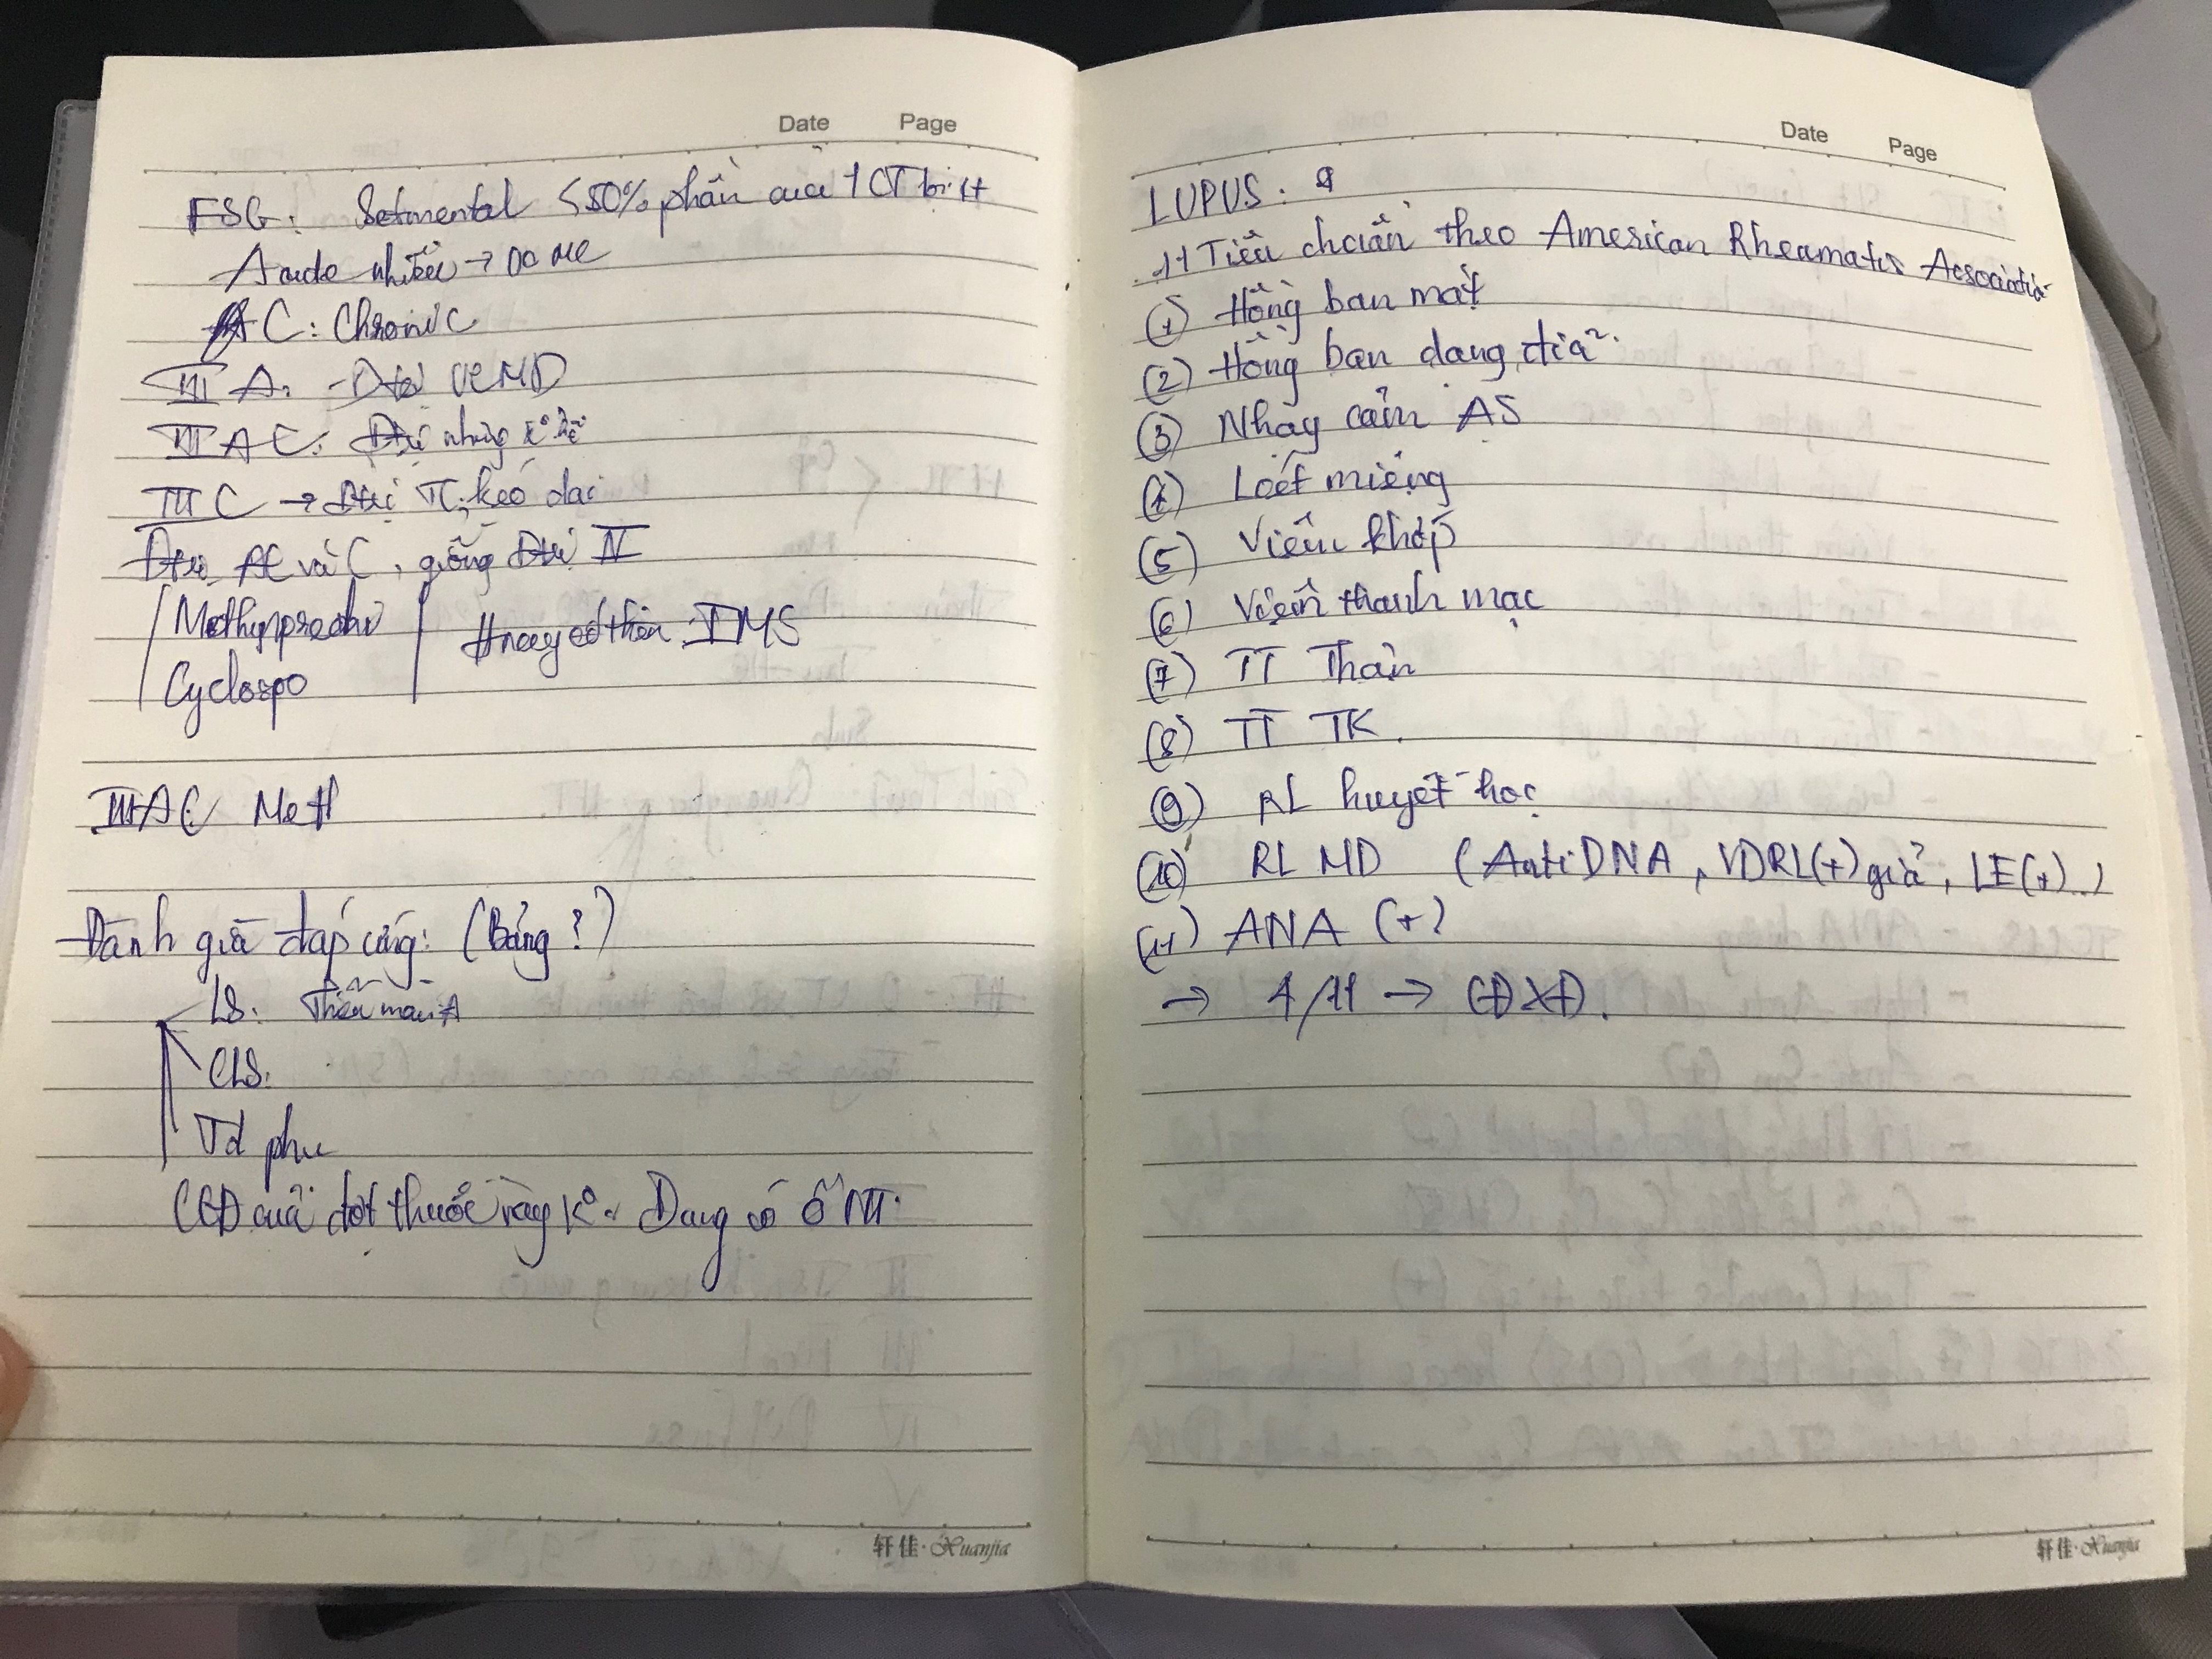 Date Page
FSG: Setmental ≤50% phần của 1 CT bị tt
nhiều →
AC: Chronic
III A: - Đtrị ƯCMD
III AC: Đtrị những
III C → Đtrị kéo dài
Đtrị AC và C, giống Đtrị IV
Methynpredni
Cyclospo
IMS
III AC Meth
Đánh giá đáp ứng: (Bảng?)
LS:
CLS:
Td phụ
CĐ của đợt thuốc này K°. Đang có ổ NT.
轩佳·Xuanjia
Date Page
LUPUS:
11 Tiêu chuẩn theo American Rheamatis Acsociatio
(1) Hồng ban mặt
(2) Hồng ban dạng đĩa
(3) Nhạy cảm AS
(4) Loét miệng
(5) Viêm khớp
(6) Viêm thanh mạc
(7) TT Thận
(8) TT TK.
(9) RL huyết học
(10) RL MD (Anti DNA, VDRL(+) giả, LE(+)..)
(11) ANA (+)
→ 4/11 → CĐXĐ.
轩佳·Xuanjia